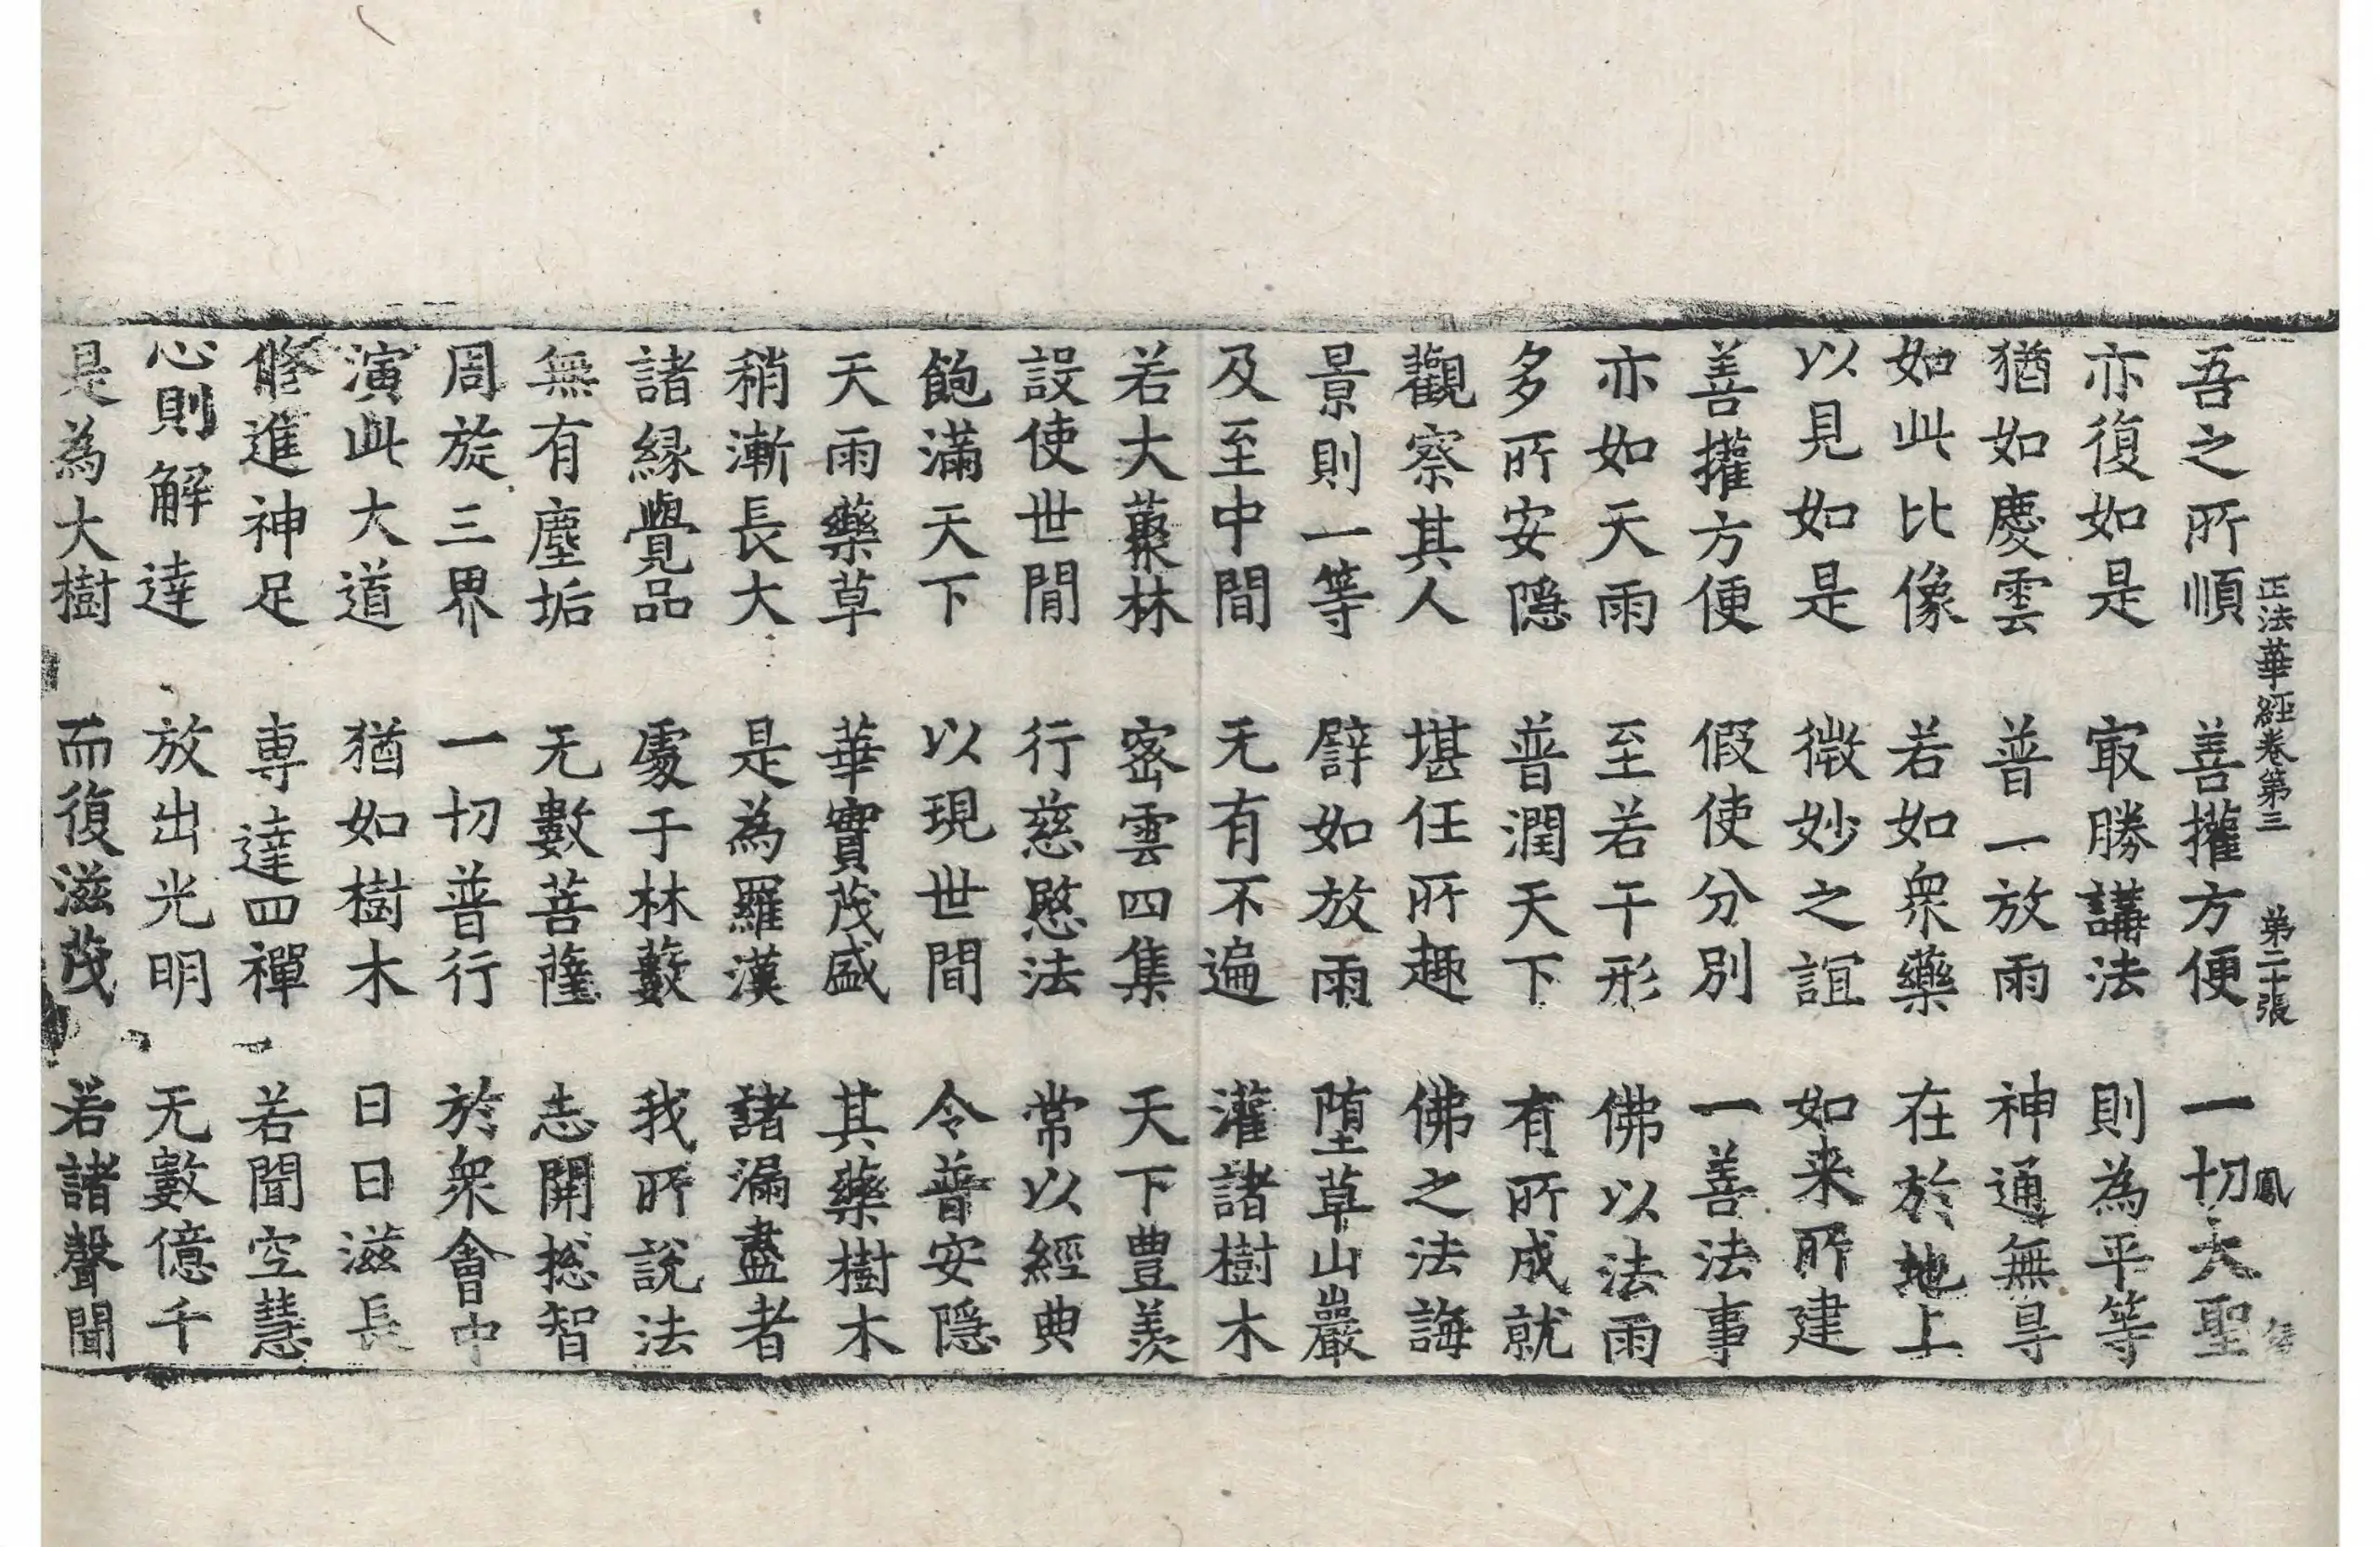 正法華經卷第三 第二十張 鳳
吾之所順 善權方便 一切大聖
亦復如是 㝡勝講法 則為平等
猶如慶雲 普一放雨 神通無㝵
如此比像 若如衆藥 在於地上
以見如是 微妙之誼 如来所建
善權方便 假使分別 一善法事
亦如天雨 至若干形 佛以法雨
多所安隱 普潤天下 有所成就
觀察其人 堪任所趣 佛之法誨
景則一等 譬如放雨 墮草山巖
及至中間 无有不遍 灌諸樹木
若大藂林 密雲四集 天下豊羡
設使世間 行慈愍法 常以經典
飽滿天下 以現世間 令普安隱
天雨藥草 華實茂盛 其藥樹木
稍漸長大 是為羅漢 諸漏盡者
諸縁覺品 處于林藪 我所說法
無有塵垢 无數菩薩 志開捴智
周旋三界 一切普行 於衆會中
演此大道 猶如樹木 日日滋長
修進神足 専達四禪 若聞空慧
心則解達 放出光明 无數億千
是為大樹 而復滋茂 若諸聲聞